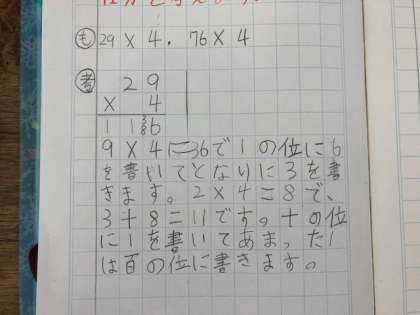 も 29×4. 76×4
考
29
× 4
1 1 3 8 6
9×4=36で1の位に6
を書いてとなりに3を書
きます。2×4=8で、
3+8=11です。十の位
に1を書いてあまった1
は百の位に書きます。